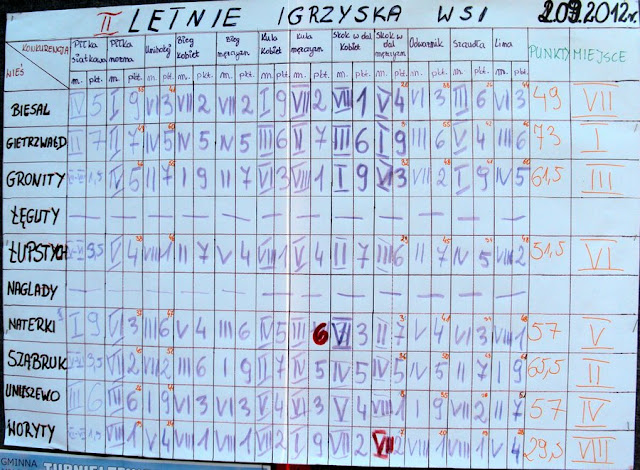 II LETNIE IGRZYSKA WSI 2.09.2012r.
KONKURENCJA Piłka siatkowa Piłka nożna Unihokej Bieg kobiet Bieg mężczyzn Kula kobiet Kula mężczyzn Skok w dal kobiet Skok w dal mężczyzn Szczudła Lina PUNKTY MIEJSCE
WIEŚ m. pkt. m. pkt. m. pkt. m. pkt. m. pkt. m. pkt. m. pkt. m. pkt. m. pkt. m. pkt. m. pkt. m. pkt.
BIESAL IV 5 I 9 VI 3 VII 2 VII 2 I 9 VII 2 VIII 1 V 4 VI 3 III 6 VI 3 49 VII
GIETRZWAŁD II 7 II 7 IV 5 IV 5 IV 5 III 6 II 7 III 6 I 9 III 6 V 4 III 6 73 I
GRONITY 1,5 IV 5 II 7 I 9 II 7 VI 3 VIII 1 I 9 VI 3 VII 2 I 9 IV 5 61,5 III
ŁĘGUTY — — — — — — — — — — — —
ŁUPSTYCH 3,5 V 4 VIII 1 II 7 V 4 VIII 1 V 4 II 7 III 6 II 7 IV 5 VII 2 51,5 VI
NAGLADY — — — — — — — — — — — —
NATERKI I 9 VI 3 III 6 V 4 III 6 IV 5 III 6 VI 3 II 7 V 4 VI 3 VIII 1 57 V
SZĄBRUK 3,5 VII 2 VII 2 III 6 I 9 II 7 IV 5 IV 5 IV 5 IV 5 II 7 I 9 65,5 II
UNIESZEWO III 6 III 6 I 9 VI 3 VI 3 V 4 VI 3 V 4 VIII 1 I 9 VII 2 II 7 57 IV
WORYTY 1,5 VIII 1 V 4 VIII 1 VIII 1 VII 2 I 9 VII 2 VII 2 VIII 1 VIII 1 V 4 29,5 VIII
GMINNA